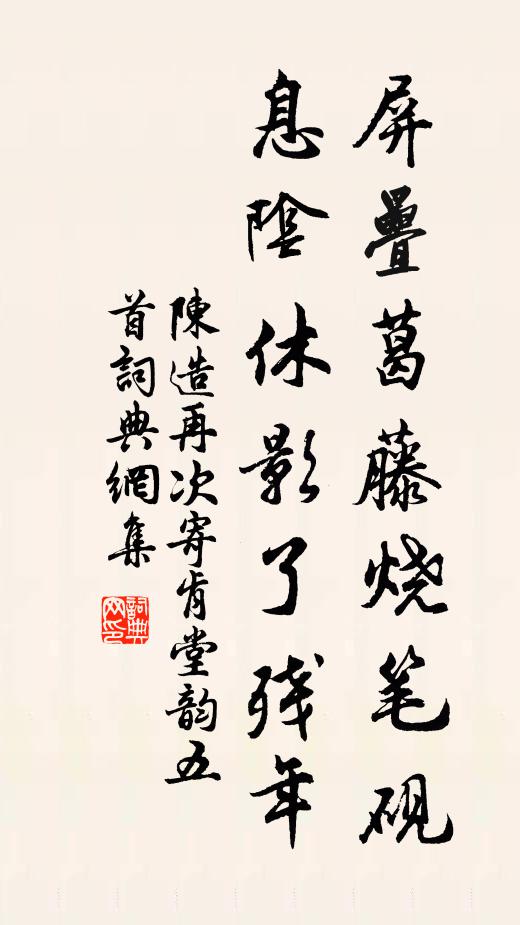 屏疊葛藤烧笔砚
息陰休影了残年
陳造再次寄肯堂韵五
首詞典網集
詞典
网印